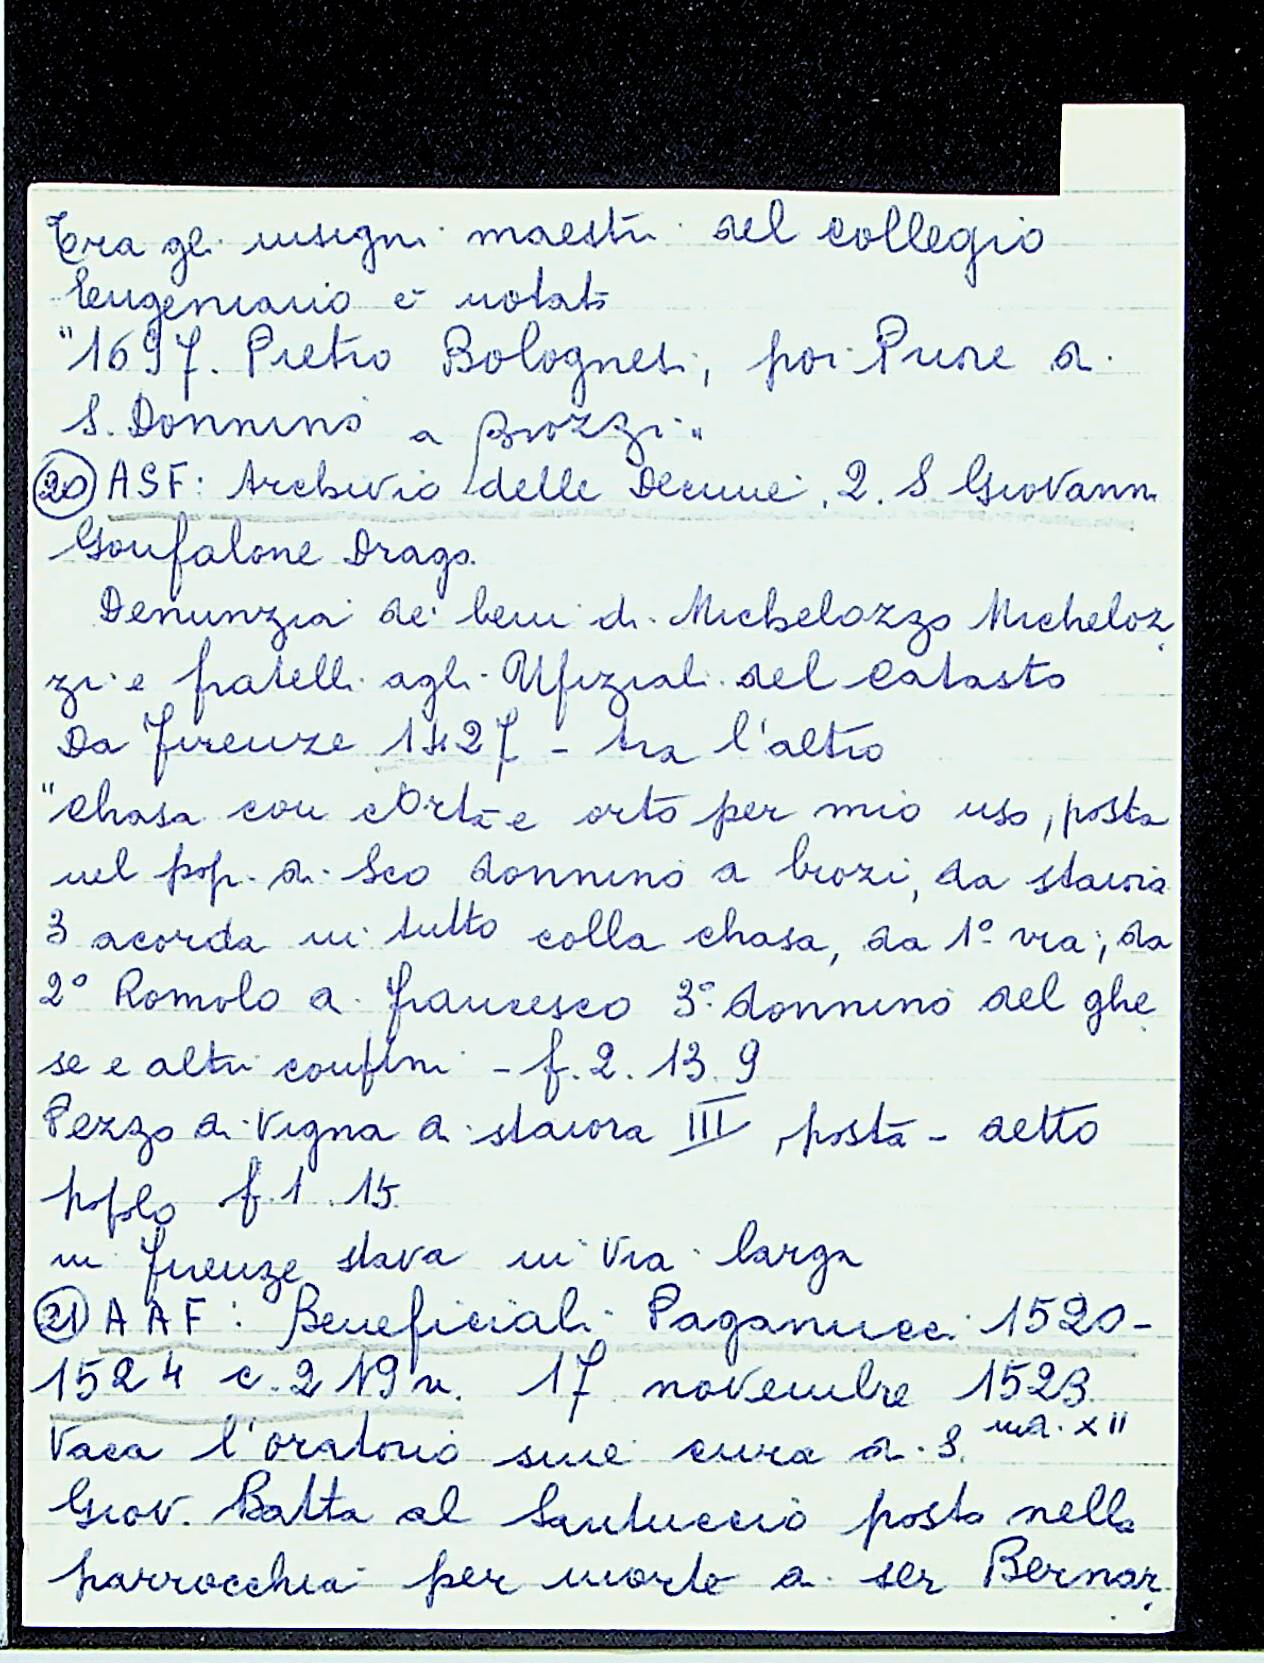 Tra gli insigni maestri del collegio
Eugeniano è notato
"1697. Pietro Bolognesi, poi Priore di
S. Donnino a Brozzi"
20 ASF: Archivio delle Decime, 2. S Giovanni
Gonfalone Drago.
Denunzia dei beni di Michelozzo Micheloz
zi e fratelli agli Ufiziali del Catasto
Da Firenze 1427 - tra l'altro
"Chasa con corte e orto per mio uso, posta
nel pop. di Sco donnino a brozi, da staiora
3 acorda in tutto colla chasa, da 1° via, da
2° Romolo di francesco 3° donnino del ghe
se e altri confini - f. 2. 13. 9
Pezzo di vigna di staiora III, posta - detto
popolo f. 1. 15
in firenze stava in Via larga
21 AAF: Beneficiali Paganucci 1520-
1524 c. 219v. 17 novembre 1523
ind. XII
Vaca l'oratorio sine cura di S.
Giov. Batta al Santuccio posto nella
parrocchia per morte di ser Bernar